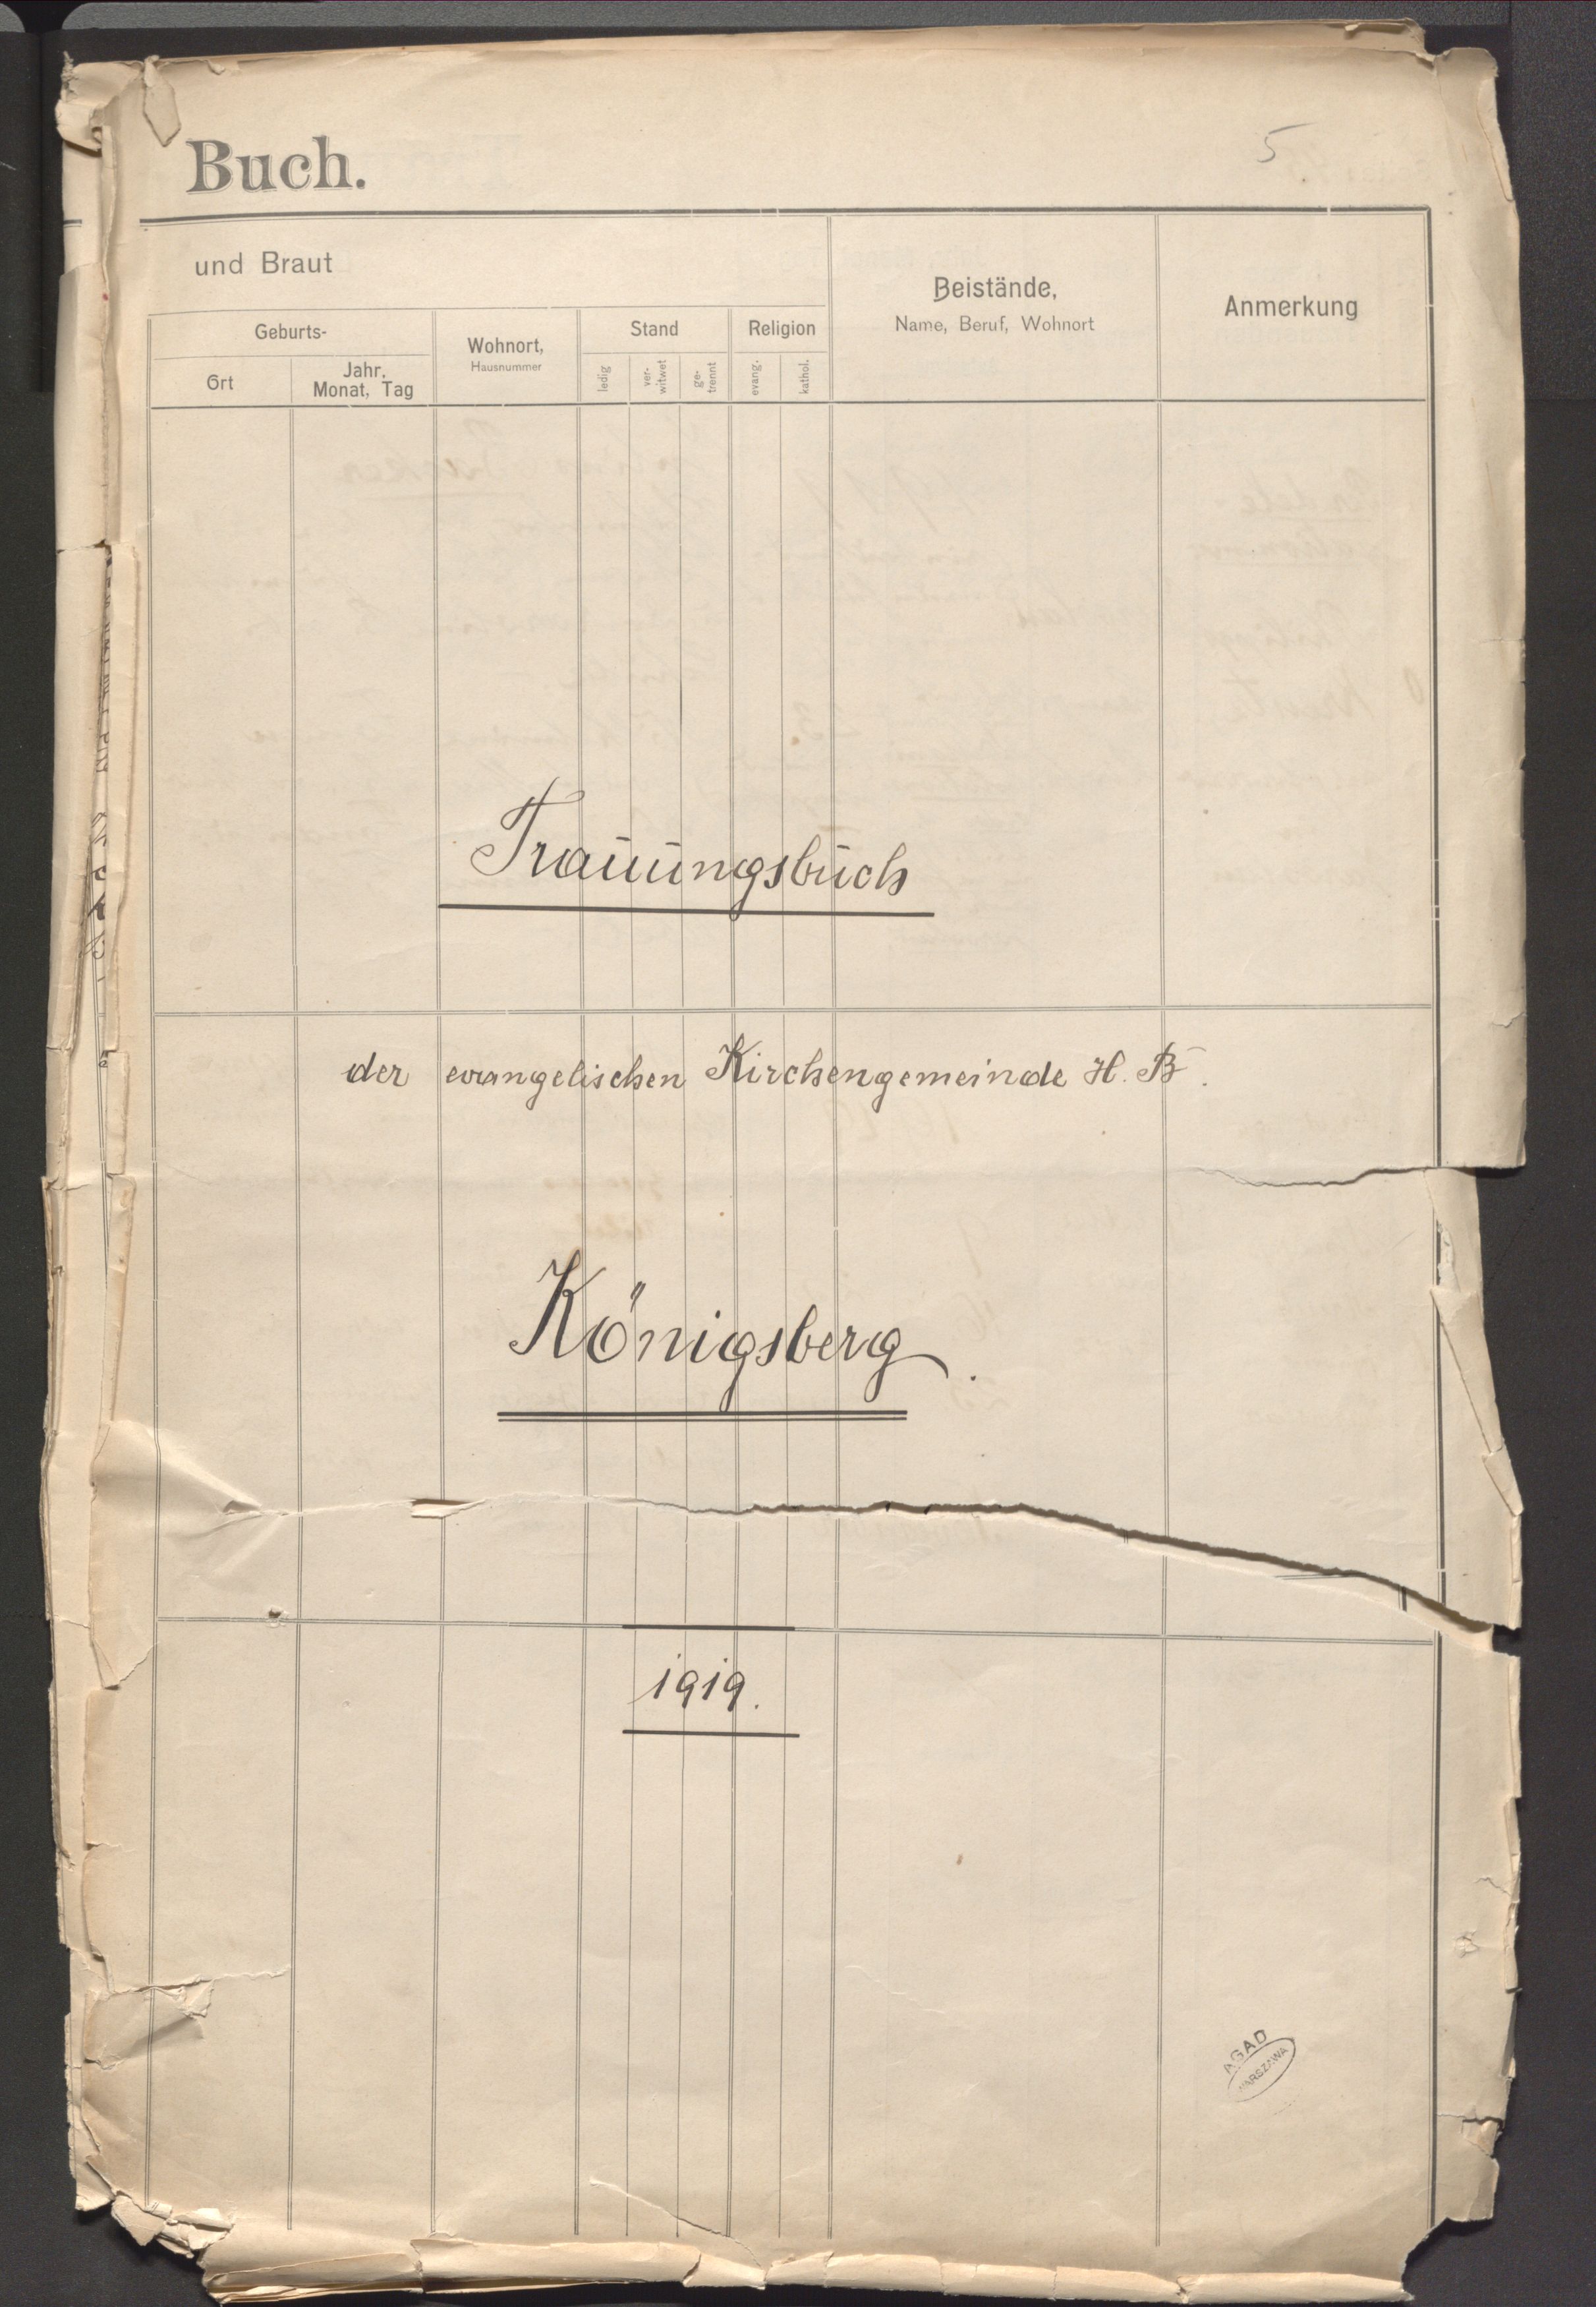 Buch.
5
und Braut
Geburts-
Ort
Jahr, Monat, Tag
Wohnort,
Hausnummer
Stand
ledig
ver-witwet
ge-trennt
Religion
evang.
kathol.
Beistände,
Name, Beruf, Wohnort
Anmerkung
Trauungsbuch
der evangelischen Kirchengemeinde H. B.
Königsberg.
1919.
AGAD
WARSZAWA